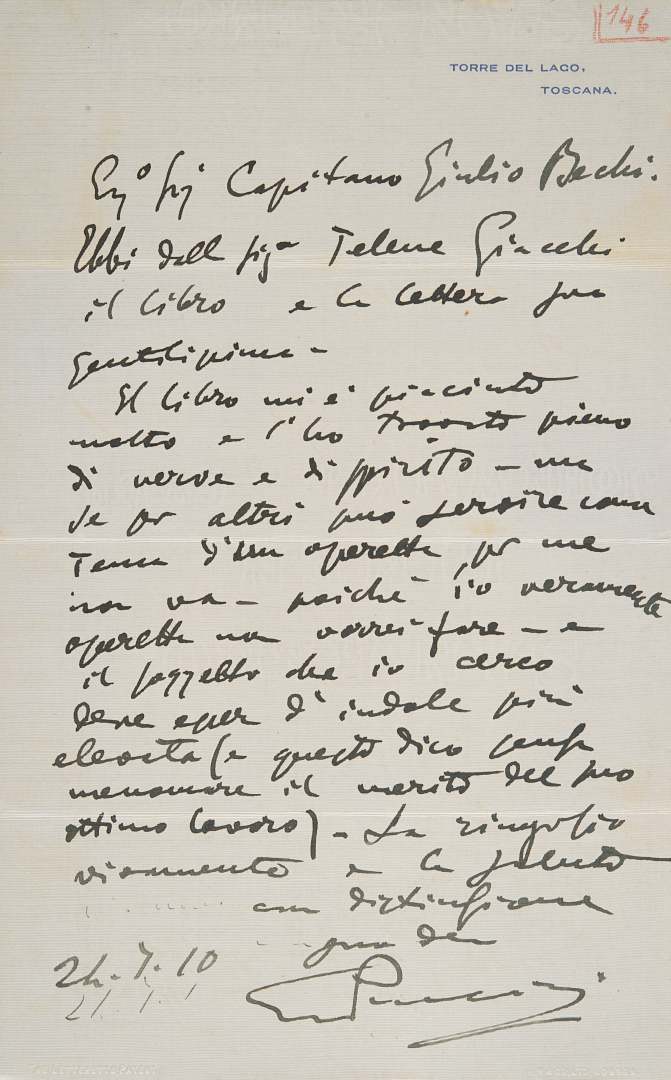 146
TORRE DEL LAGO,
TOSCANA.
Egº Sig Capitano Giulio Bechi.
Ebbi dall Sigª Telene Giacchi
il libro e la lettera sua
gentilissima -
Il libro mi è piaciuto
molto e l'ho trovato pieno
di verve e di spirito - ma
se per altri può servire come
tema d'un operetta, per me
non va - poichè io veramente
operette non vorrei fare - e
il soggetto che io cerco
deve esser d'indole più
elevata (e questo dico senza
menomare il merito del suo
ottimo lavoro) - La ringrazio
vivamente e la saluto
con distinzione
24.7.10
Puccini
THE LETTERETTE PATENT